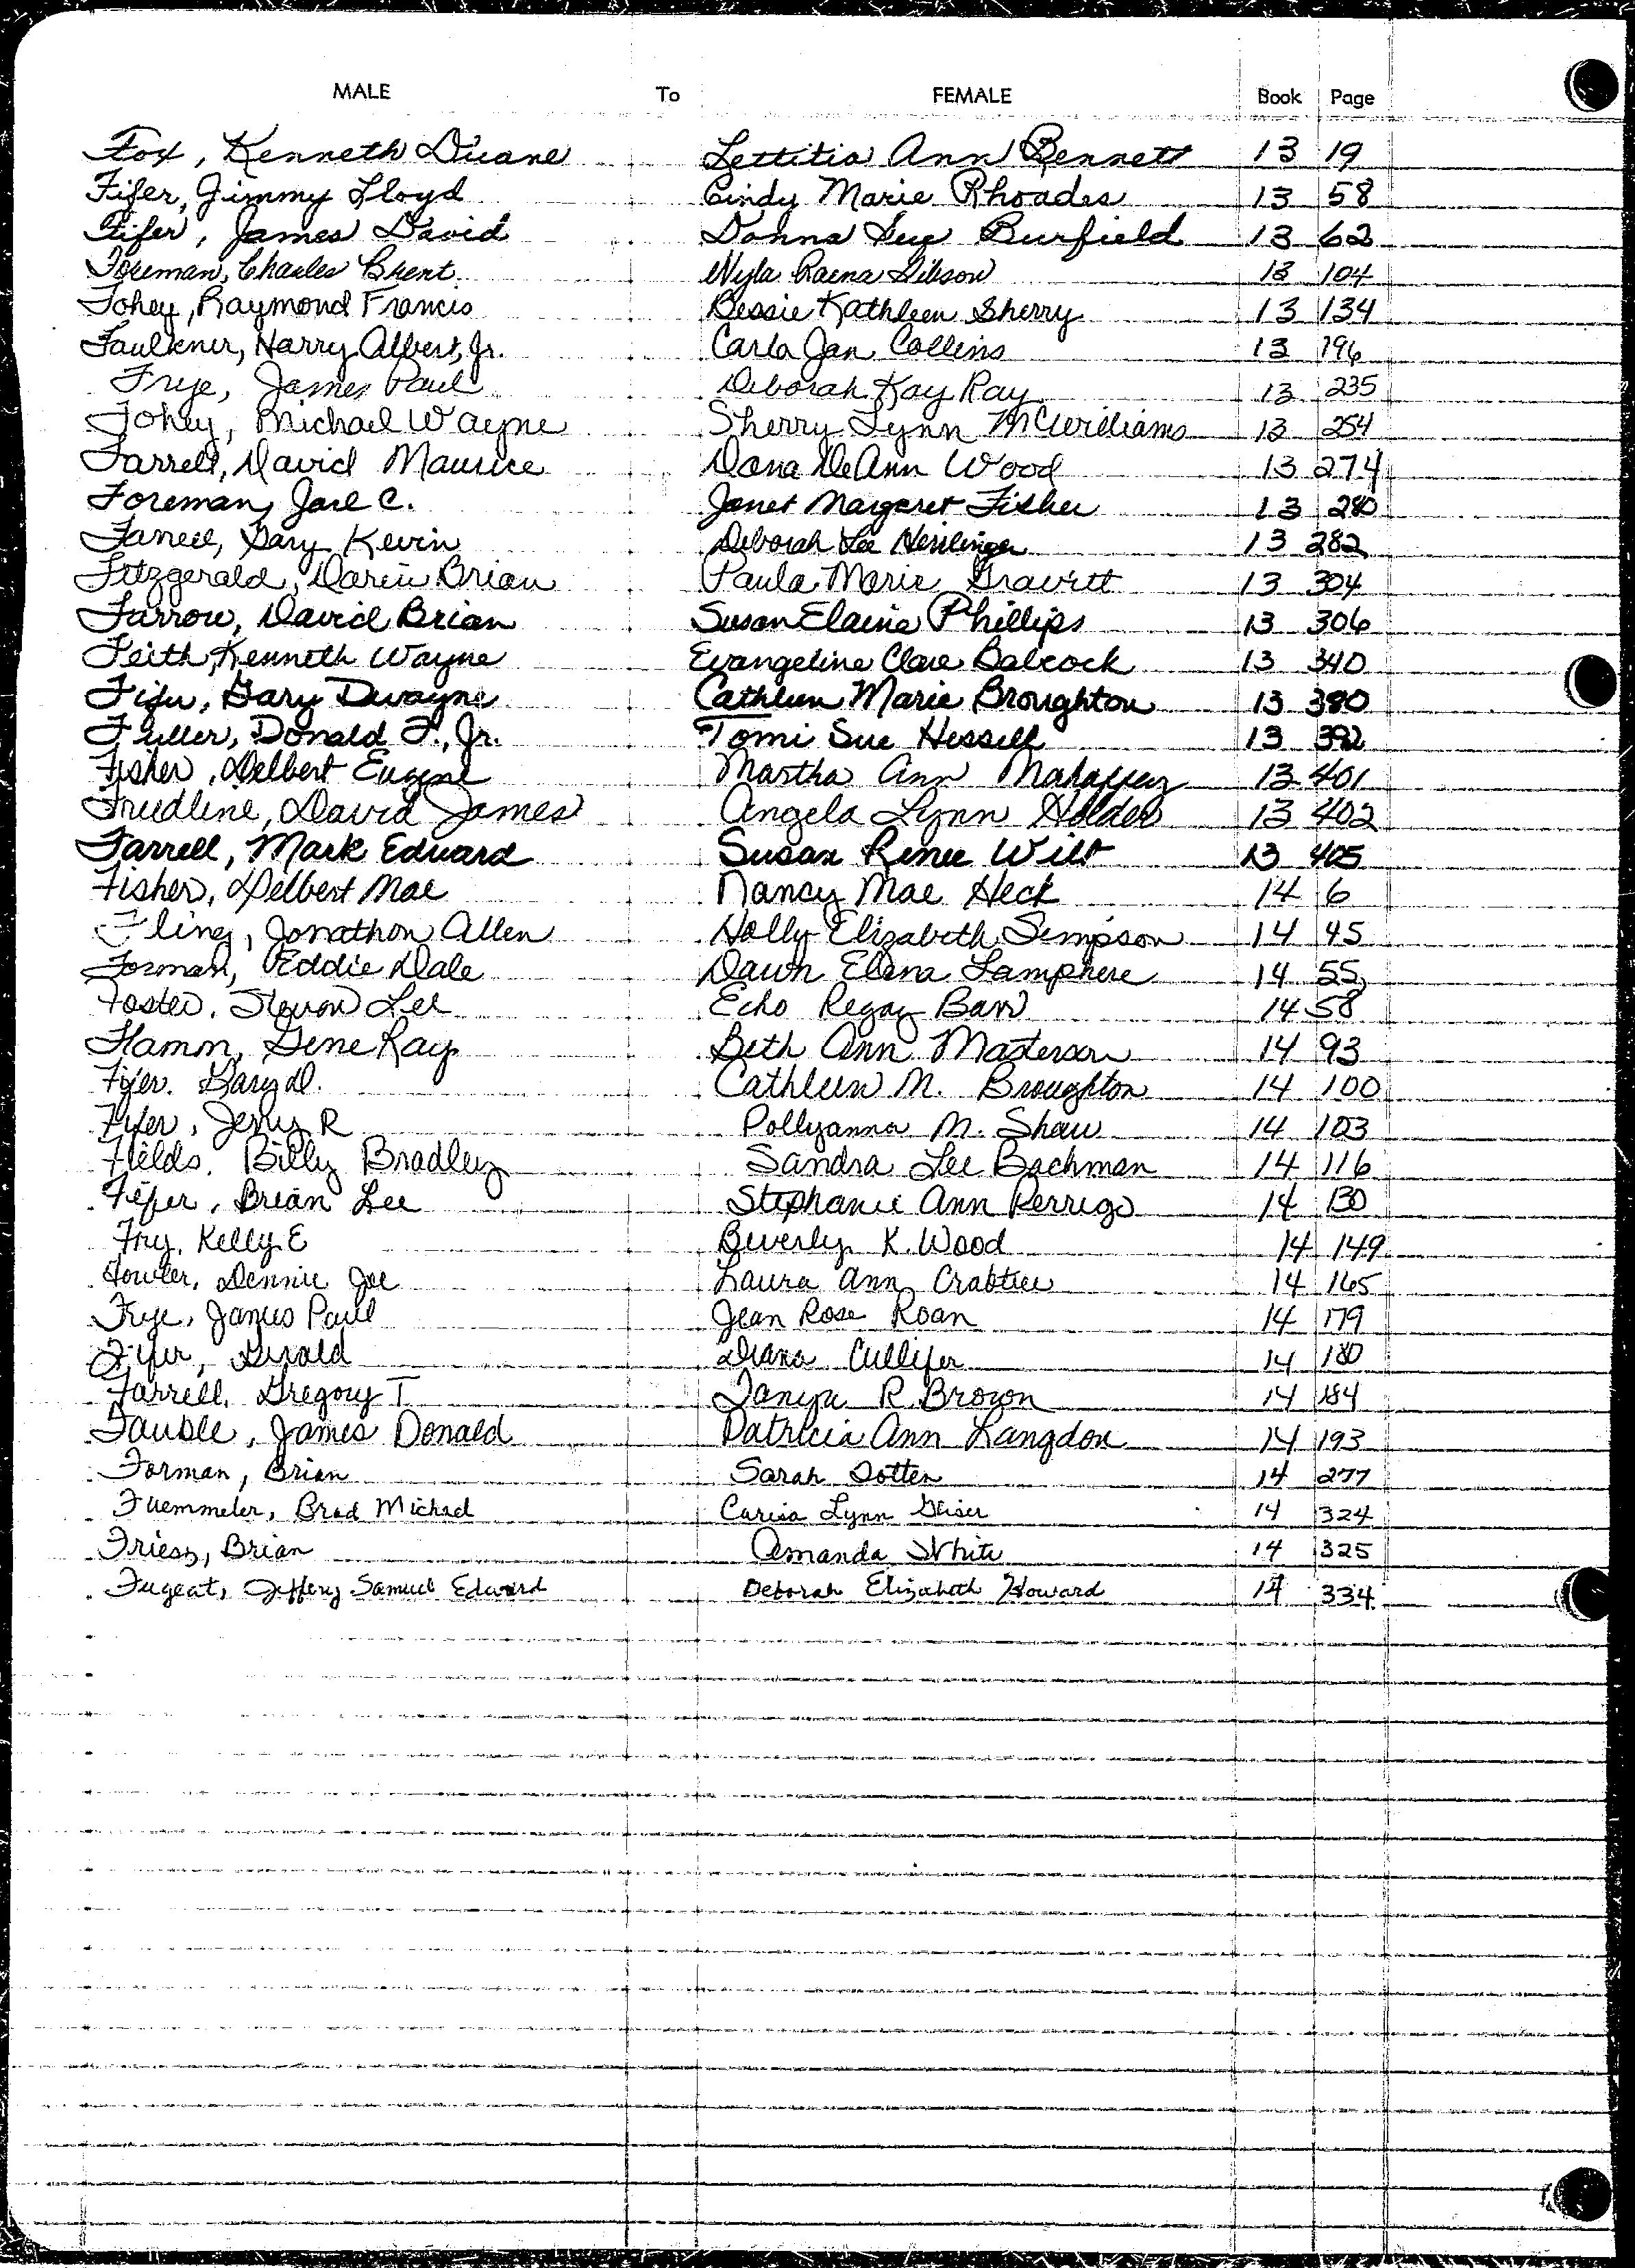 MALE To FEMALE Book Page
Fox, Kenneth Duane Lettitia Ann Bennett 13 19
Fifer, Jimmy Lloyd Cindy Marie Rhoades 13 58
Fifer, James David Donna Sue Burfield 13 62
Foreman, Charles Brent Nyla Raena Gibson 13 104
Fohey, Raymond Francis Bessie Kathleen Sherry 13 134
Faulkner, Harry Albert, Jr. Carla Jan Collins 13 196
Frye, James Paul Deborah Kay Ray 13 235
Fohey, Michael Wayne Sherry Lynn McWilliams 13 254
Farrell, David Maurice Dana DeAnn Wood 13 274
Foreman, Jarl C. Janet Margaret Fisher 13 280
Farrell, Gary Kevin Deborah Lee 13 282
Fitzgerald, Darin Brian Paula Marie Gravitt 13 304
Farrow, David Brian Susan Elaine Phillips 13 306
Feith, Kenneth Wayne Evangeline Clare Balcock 13 340
Fifer, Gary Dwayne Cathleen Marie Broughton 13 380
Fuller, Donald F., Jr. Tomi Sue Hessell 13 392
Fisher, Delbert Eugene Martha Ann Mahaffey 13 401
Friedline, David James Angela Lynn Holder 13 402
Farrell, Mark Edward Susan Renee Wilt 13 405
Fisher, Delbert Mae Nancy Mae Heck 14 6
Fling, Jonathon Allen Holly Elizabeth Simpson 14 45
Forman, Eddie Dale Dawn Elena Lamphere 14 55
Foster, Steven Lee Echo Regay Barr 14 58
Flamm, Gene Ray Beth Ann Masterson 14 93
Fifer, Gary D. Cathleen M. Broughton 14 100
Fifer, Jerry R Pollyanna M. Shaw 14 103
Fields, Billy Bradley Sandra Lee Bachman 14 116
Fifer, Brian Lee Stephanie Ann Perrigo 14 130
Fry, Kelly E Beverly K. Wood 14 149
Fowler, Dennie Joe Laura Ann Crabtree 14 165
Frye, James Paul Jean Rose Roan 14 179
Fifer, Gerald Diana Cullifer 14 180
Farrell, Gregory T Tanya R. Brown 14 184
Fauble, James Donald Patricia Ann Langdon 14 193
Forman, Brian Sarah Totten 14 277
Fuemmeler, Brad Michael Carisa Lynn Gliser 14 324
Friess, Brian Amanda White 14 325
Fugeat, Jeffery Samuel Edward Deborah Elizabeth Howard 14 334